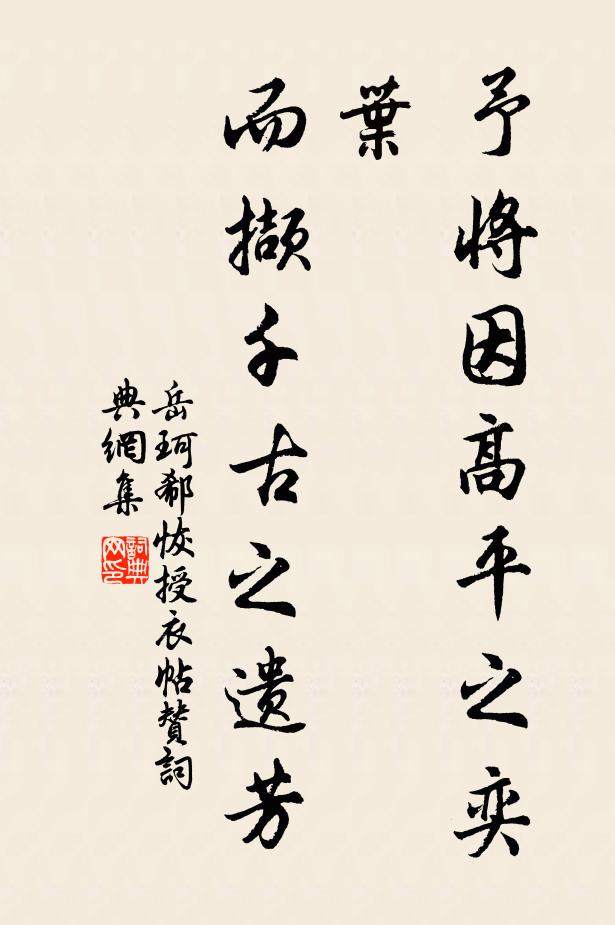 予將因高平之奕
葉
而擷千古之遺芳
岳珂郗恢授衣帖贊詞
典網集
詞典網印